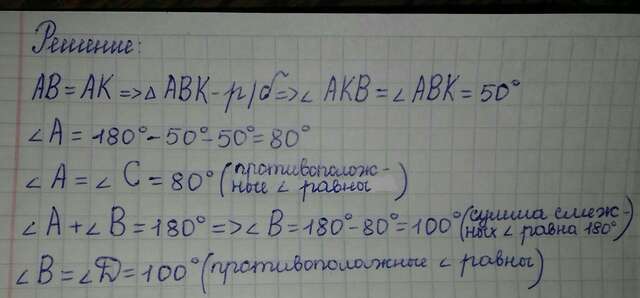 Решение:
AB = AK => △ ABK - р/б => ∠ AKB = ∠ ABK = 50°
∠ A = 180° - 50° - 50° = 80°
∠ A = ∠ C = 80° (противополож-
ные ∠ равны)
∠ A + ∠ B = 180° => ∠ B = 180° - 80° = 100° (сумма смеж-
ных ∠ равна 180°)
∠ B = ∠ D = 100° (противоположные ∠ равны)